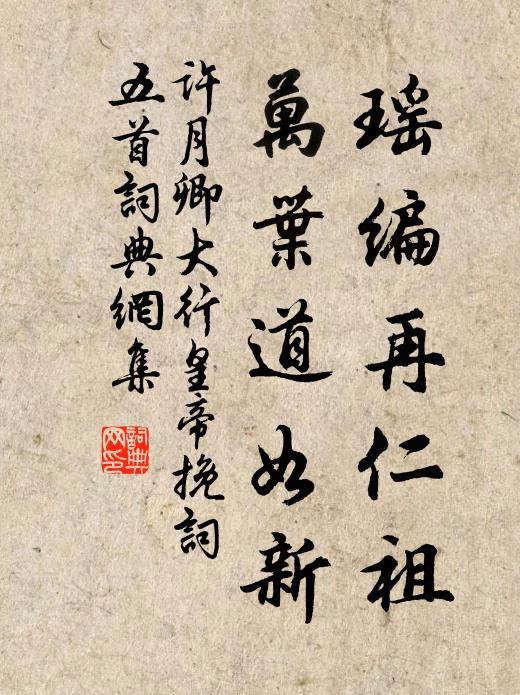 瑶编再仁祖
萬葉道如新
許月卿大行皇帝挽詞
五首詞典網集
詞典网印